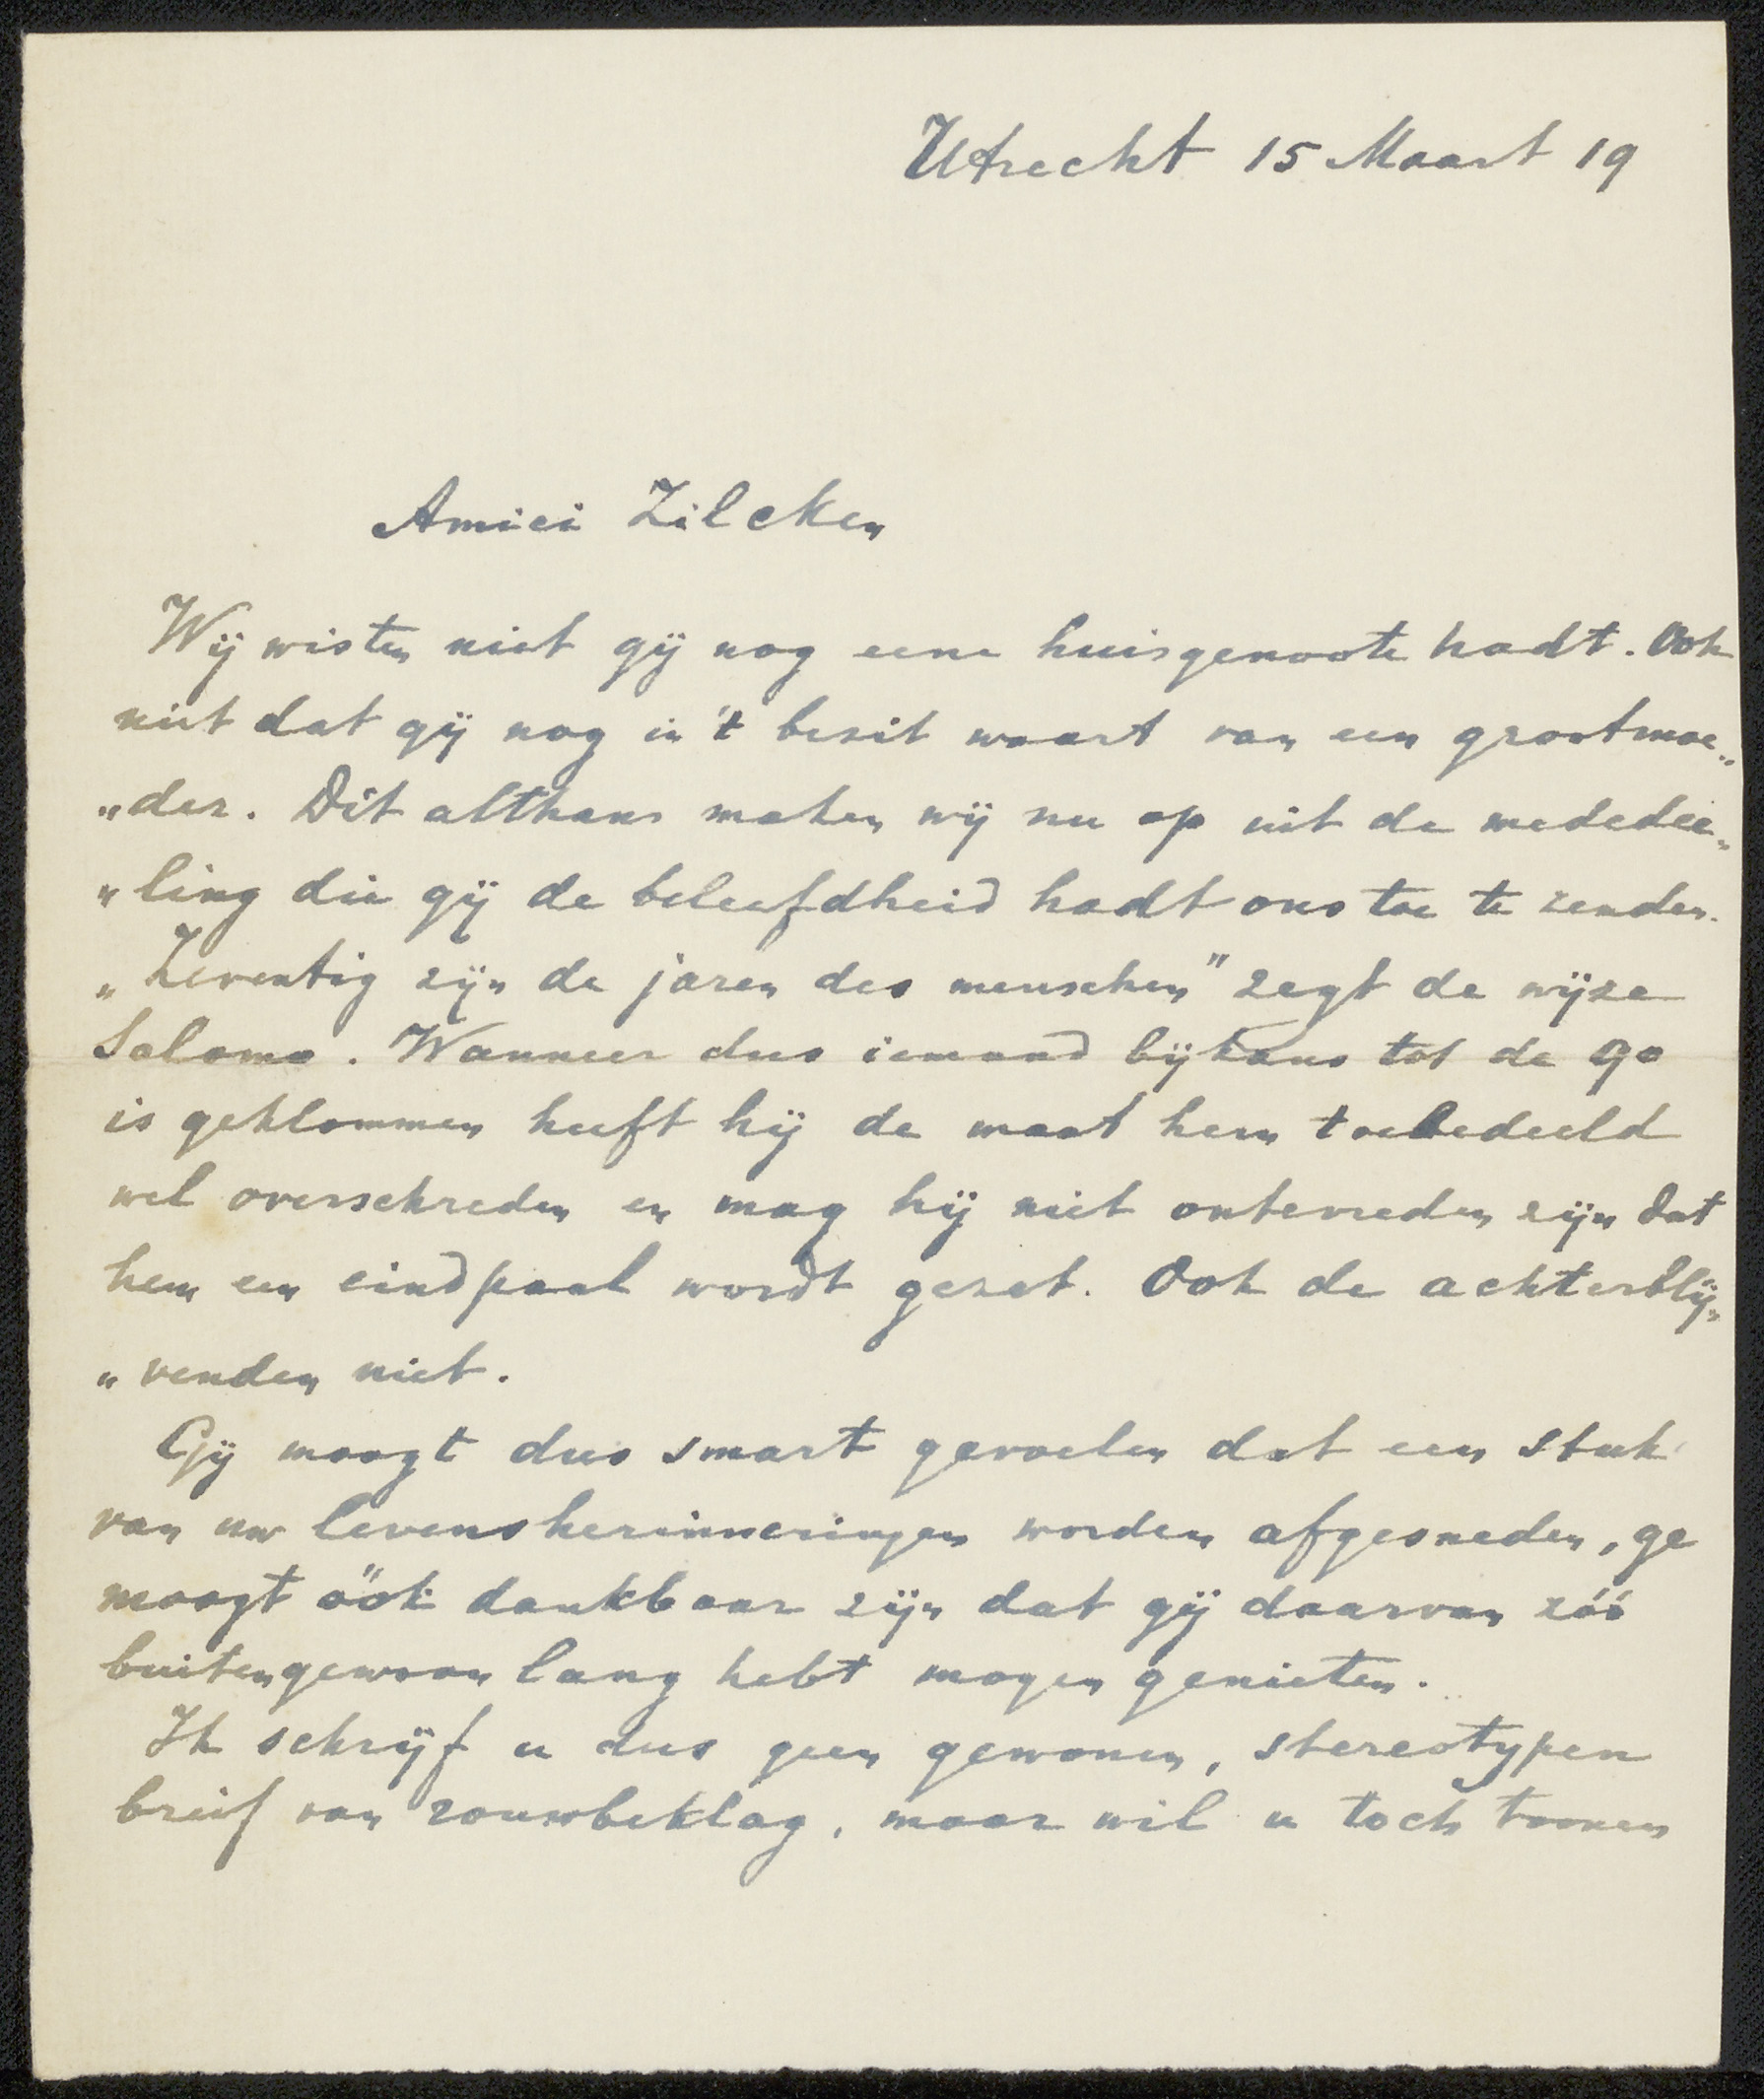 Utrecht 15 Maart 19
Amici Zilcken
Wij wisten niet gij nog eene huisgenoote hadt. Ook
niet dat gij nog in 't bezit waart van een grootmoe„
„der. Dit althans maken wij nu op uit de mededee„
„ling die gij de beleefdheid hadt ons toe te zenden.
„Zeventig zijn de jaren des menschen" zegt de wijze
Salomo. Wanneer dus iemand bijkans tot de 90
is geklommen heeft hij de maat hem toebedeeld
wel overschreden en mag hij niet ontevreden zijn dat
hem een eindpaal wordt gezet. Ook de achterblij„
„venden niet.
Gij moogt dus smart gevoelen dat een stuk
van uw levensherinneringen worden afgesneden, ge
moogt óók dankbaar zijn dat gij daarvan zóó
buitengewoon lang hebt mogen genieten.
Ik schrijf u dus geen gewonen, stereotypen
brief van rouwbeklag, maar wil u toch toonen